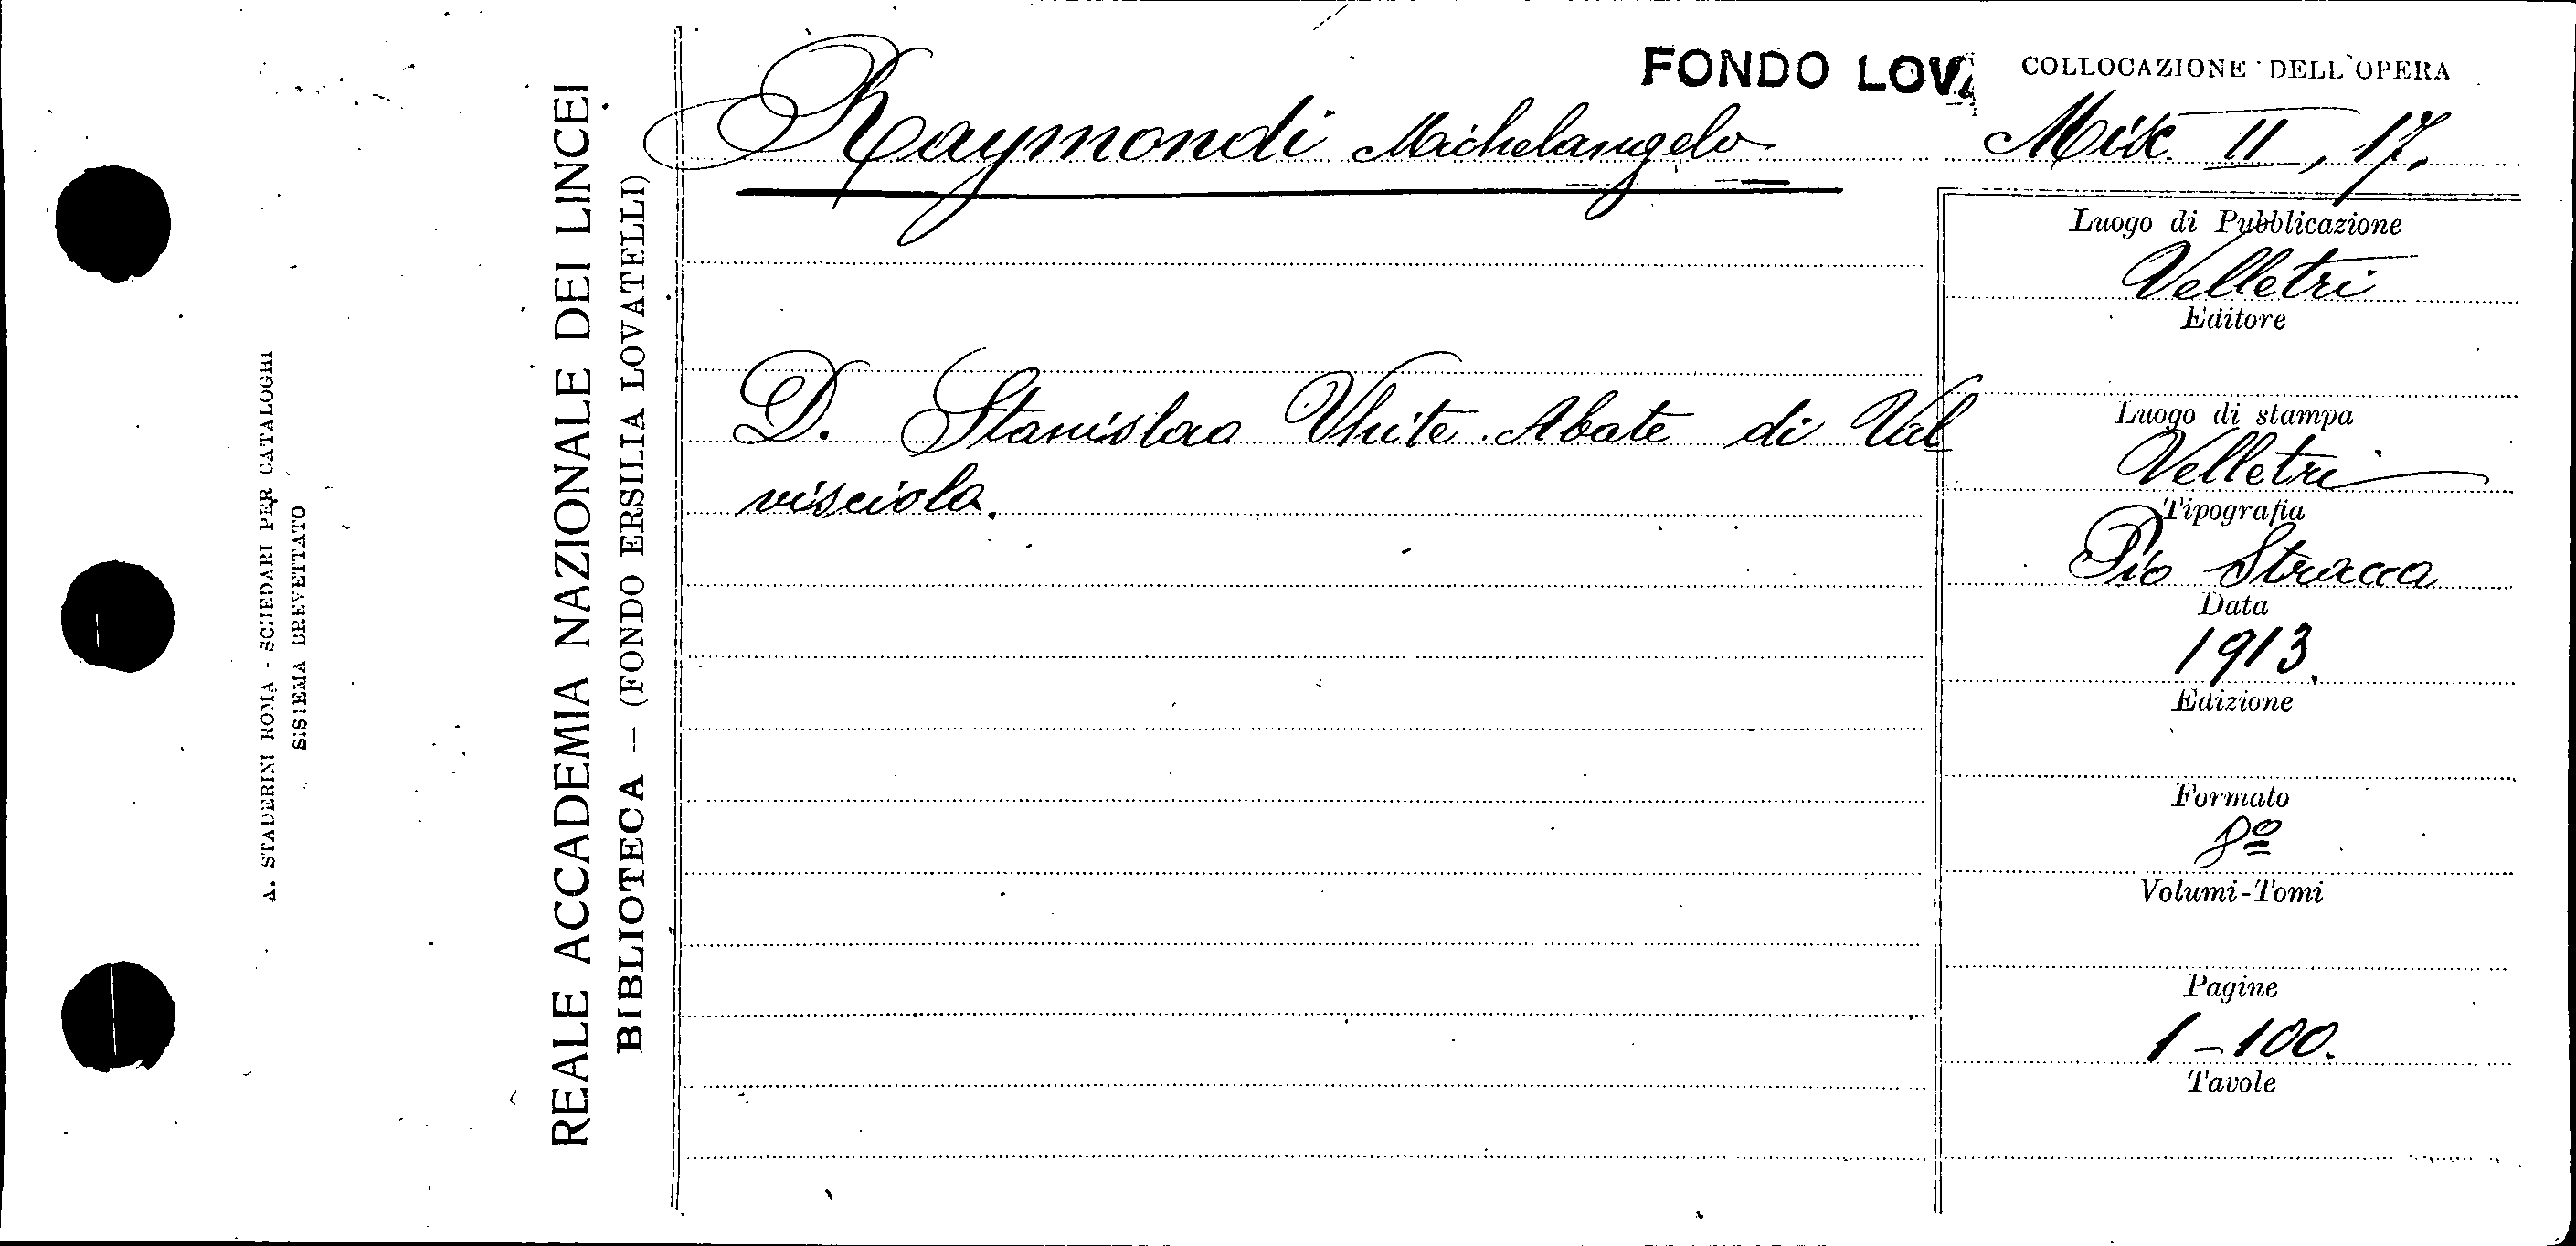 A. STADERINI ROMA - SCHEDARI PER CATALOGHI
SISTEMA BREVETTATO
REALE ACCADEMIA NAZIONALE DEI LINCEI
BIBLIOTECA — (FONDO ERSILIA LOVATELLI)
FONDO LOVA
COLLOCAZIONE DELL'OPERA
Raymondi Michelangelo
Misc. II, 17.
Luogo di Pubblicazione
Velletri
Editore
D. Stanislao White Abate di Val
visciola.
Luogo di stampa
Velletri
Tipografia
Pio Stracca
Data
1913.
Edizione
Formato
8º
Volumi-Tomi
Pagine
1-100.
Tavole